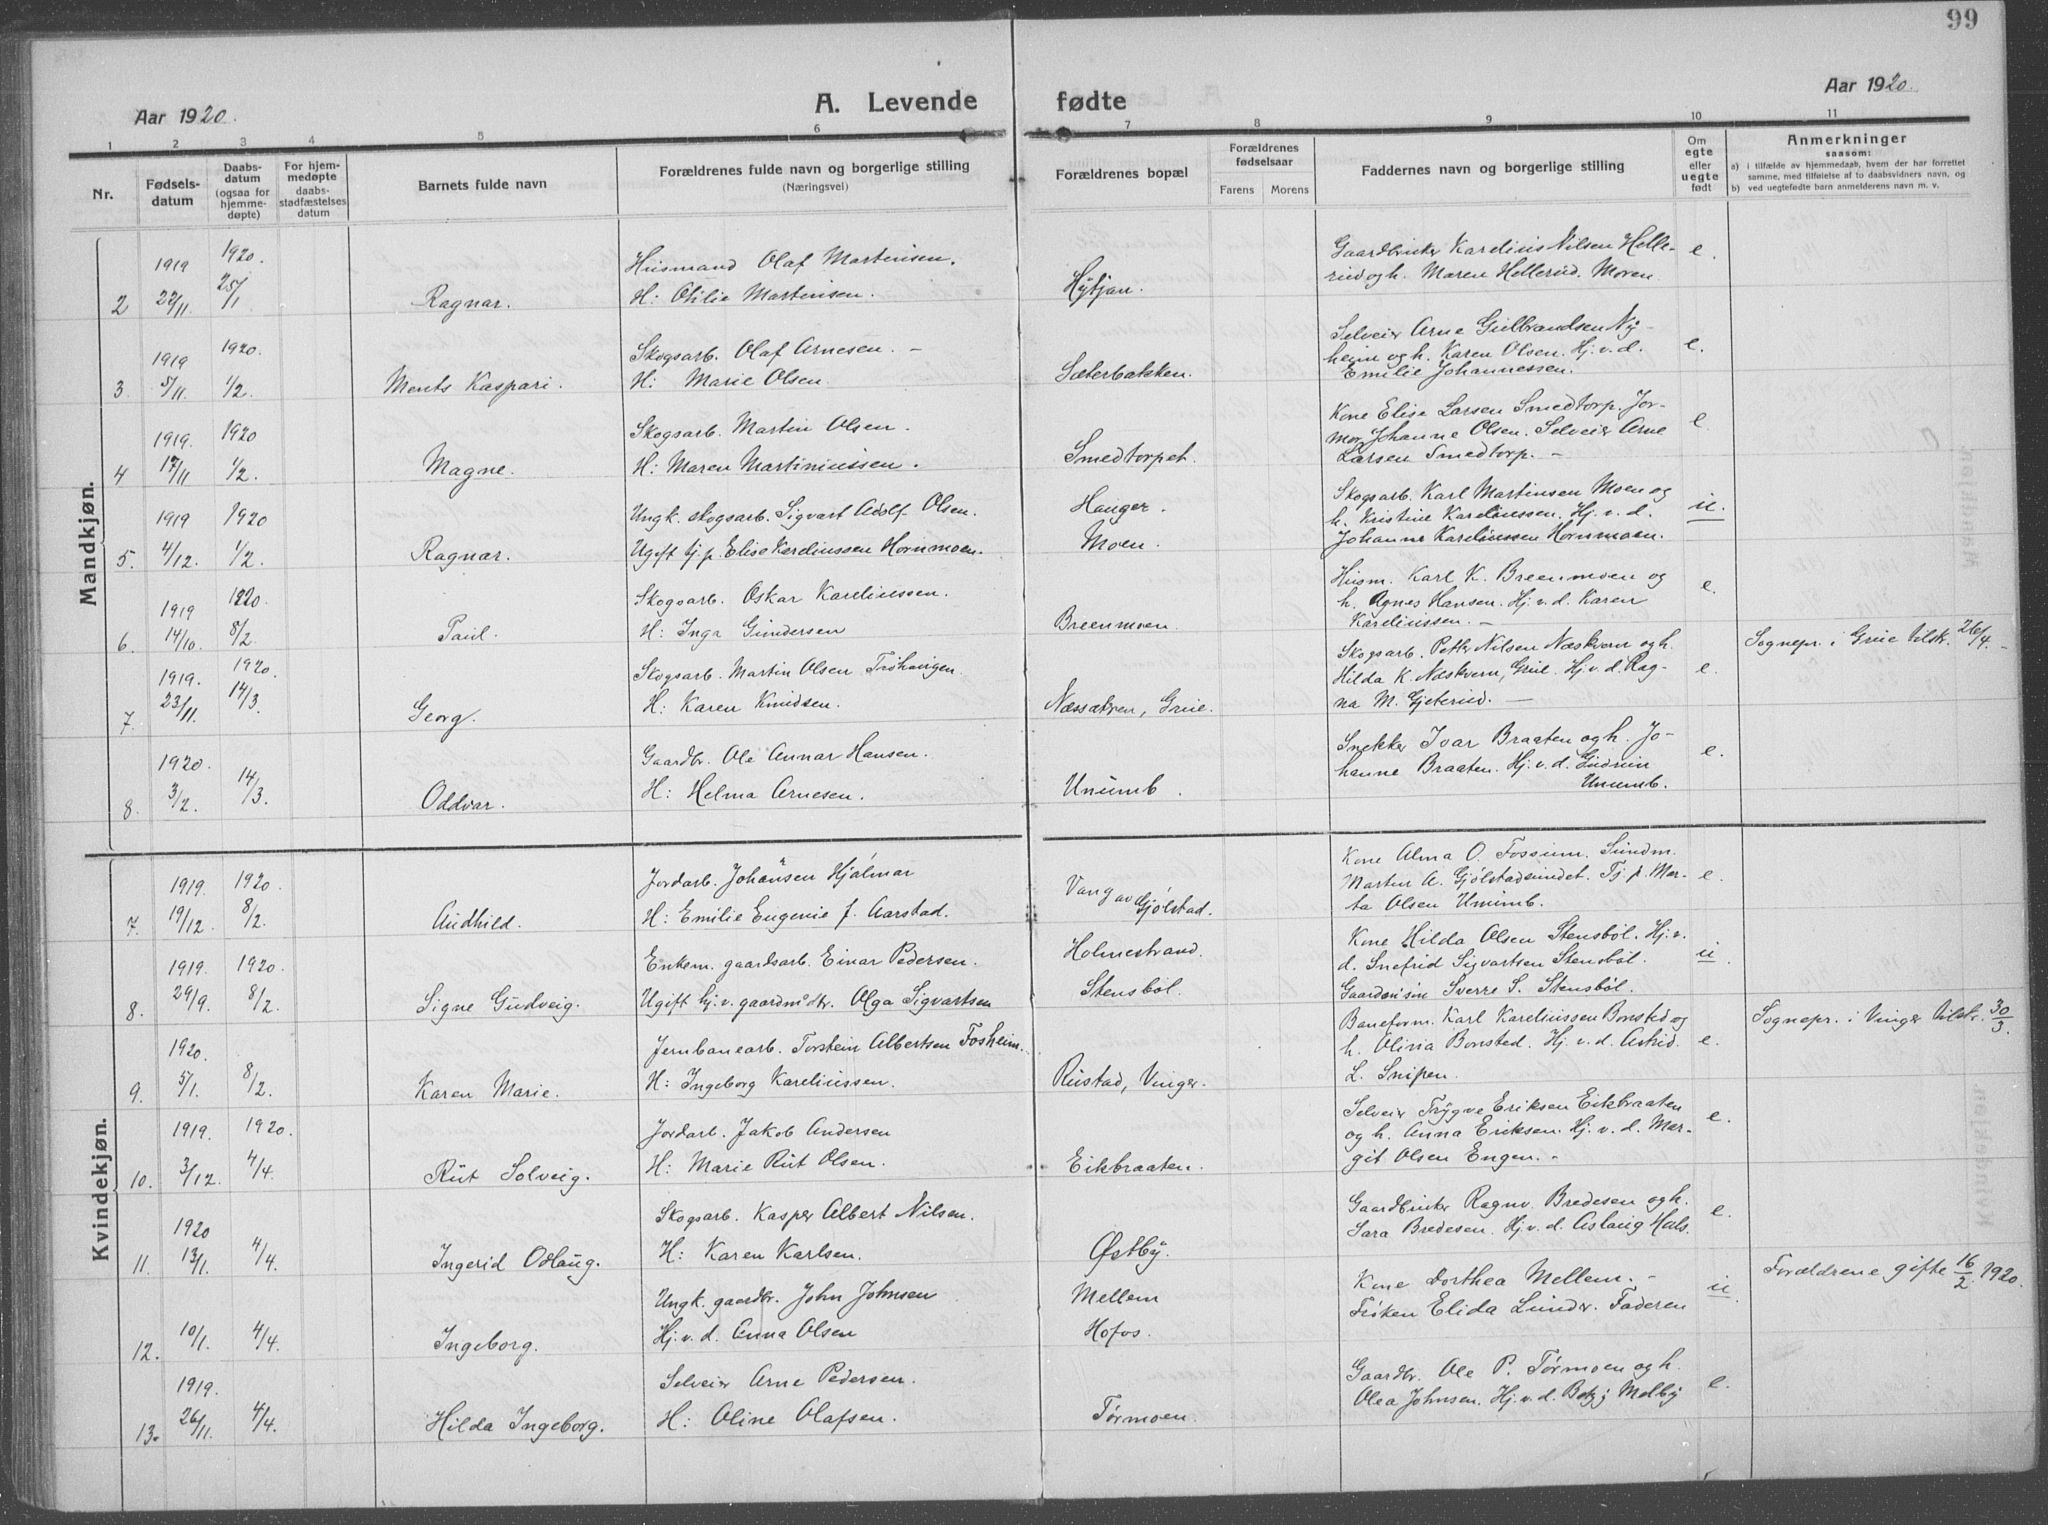 99
Aar 1920.
A. Levende fødte
Aar 1920.
1 2 3 4 5 6 7 8 9 10 11
Nr.
Fødsels-
datum
Daabs-
datum
(ogsaa for
hjemme-
døpte)
For hjem-
medøpte
daabs-
stadfæstelses
datum
Barnets fulde navn
Forældrenes fulde navn og borgerlige stilling
(Næringsvei)
Forældrenes bopæl
Forældrenes
fødselsaar
Farens Morens
Faddernes navn og borgerlige stilling
Om
egte
eller
uegte
født
Anmerkninger
saasom:
a) i tilfælde av hjemmedaab, hvem der har forrettet
samme, med tilføielse af to daabsvidners navn, og
b) ved uegtefødte barn anmelderens navn m. v.
Mandkjøn.
2 1919 22/11 1920. 25/1 Ragnar.
Husmand Olaf Martinsen.
H: Otilie Martinsen.
Hytjan.
Gaardbruker Karelius Nilsen Helle-
rud og h. Maren Hellerud. Moren
e.
3 1919 5/11 1920. 1/2. Ments Kaspari.
Skogsarb. Olaf Arnesen. –
H: Marie Olsen.
Sæterbakken.
Selveier Arne Gulbrandsen Ny-
heim og h. Karen Olsen. Hj. v. d.
Emilie Johannessen.
e.
4 1919. 17/11 1920 1/2. Magne.
Skogsarb. Martin Olsen.
H: Maren Martiniussen.
Smedtorpet.
Kone Elise Larsen Smedtorp. Jor-
mor Johanne Olsen. Selveier Arne
Larsen Smedtorp. –
e.
5. 1919 4/12. 1920 1/2. Ragnar.
Ungk. skogsarb. Sigvart Adolf Olsen.
Ugift tj. p. Elise Kareliussen Hornmoen.
Hanger.
Moen.
Skogsarb. Karl Martinsen Moen og
h. Kristine Kareliussen. Hj. v. d.
Johanne Kareliussen Hornmoen.
u.
6. 1919 14/10. 1920. 8/2. Paul.
Skogsarb. Oskar Kareliussen.
H: Inga Gundersen
Breenmoen.
Husm. Karl K. Breenmoen og
h. Agnes Hansen. Hj. v. d. Karen
Kareliussen. –
e.
7. 1919. 23/11. 1920. 14/3. Georg.
Skogsarb. Martin Olsen Trøhaugen.
H: Karen Knudsen.
Næssækren, Grue.
Skogsarb. Petter Nilsen Næskvern og h.
Hilda K. Næskvern, Grue. Hj. v. d. Rag-
na M. Gjeterud. –
e.
Sognepr. i Grue tilskr. 26/4. –
8. 1920. 3/2. 14/3. Oddvar.
Gaardbr. Ole Annar Hansen.
H: Helma Arnesen.
Unumb.
Snekker Ivar Braaten og h. Jo-
hanne Braaten. Hj. v. d. Gudrun
Unumb.
e.
Kvindekjøn.
7. 1919. 19/12. 1920. 8/2. Audhild.
Jordarb. Johansen Hjalmar
H: Emilie Eugenie f. Aarstad.
Vang av
Gjølstad.
Kone Alma O. Fossum. Sundm.
Martin A. Gjølstadsundet. Tj. p. Mar-
ta Olsen Unumb.
e.
8. 1919. 29/9. 1920. 8/2. Signe Gudveig.
Enkem. gaardsarb. Einar Pedersen.
Ugift hj. v. gaardm.dtr. Olga Sigvartsen
Holmestrand.
Stensbøl.
Kone Hilda Olsen Stensbøl. Hj. v.
d. Snefrid Sigvartsen Stensbøl.
Gaardm.søn Sverre S. Stensbøl.
u.
9. 1920. 5/1. 8/2. Karen Marie.
Jernbanearb. Torstein Albertsen Fosheim.
H: Ingeborg Kareliussen.
Rustad, Vinger.
Baneform. Karl Kareliussen Bonsted og
h. Olivia Bonsted. Hj. v. d. Astrid
L. Snipen.
e.
Sognepr. i Vinger tilskr. 30/3.
10. 1919. 3/12. 1920. 4/4. Rut Solveig.
Jordarb. Jakob Andersen
H: Marie Rut Olsen.
Eikbraaten.
Selveier Trygve Eriksen Eikbraaten
og h. Anna Eriksen. Hj. v. d. Mar-
git Olsen Engen. –
e.
11. 1920 13/1. 4/4. Ingerid Odlaug.
Skogsarb. Kasper Albert Nilsen.
H: Karen Karlsen.
Østby.
Gaardbruker Ragnv. Bredesen og h.
Sara Bredesen. Hj. v. d. Aslaug Hals.
e.
12. 10/1. 4/4. Ingeborg.
Ungk. gaardbr. John Johnsen
Hj. v. d. Anna Olsen
Mellem
Hofos.
Kone Dorthea Mellem. –
Frøken Elida Lunder. Faderen
u.
Forældrene gifte 16/2. 1920.
13. 1919. 26/11. 4/4. Hilda Ingeborg.
Selveier Arne Pedersen.
H: Oline Olafsen.
Tørmoen.
Gaardbr. Ole P. Tørmoen og h.
Olea Johnsen. Hj. v. d. Betzy Melby
e.